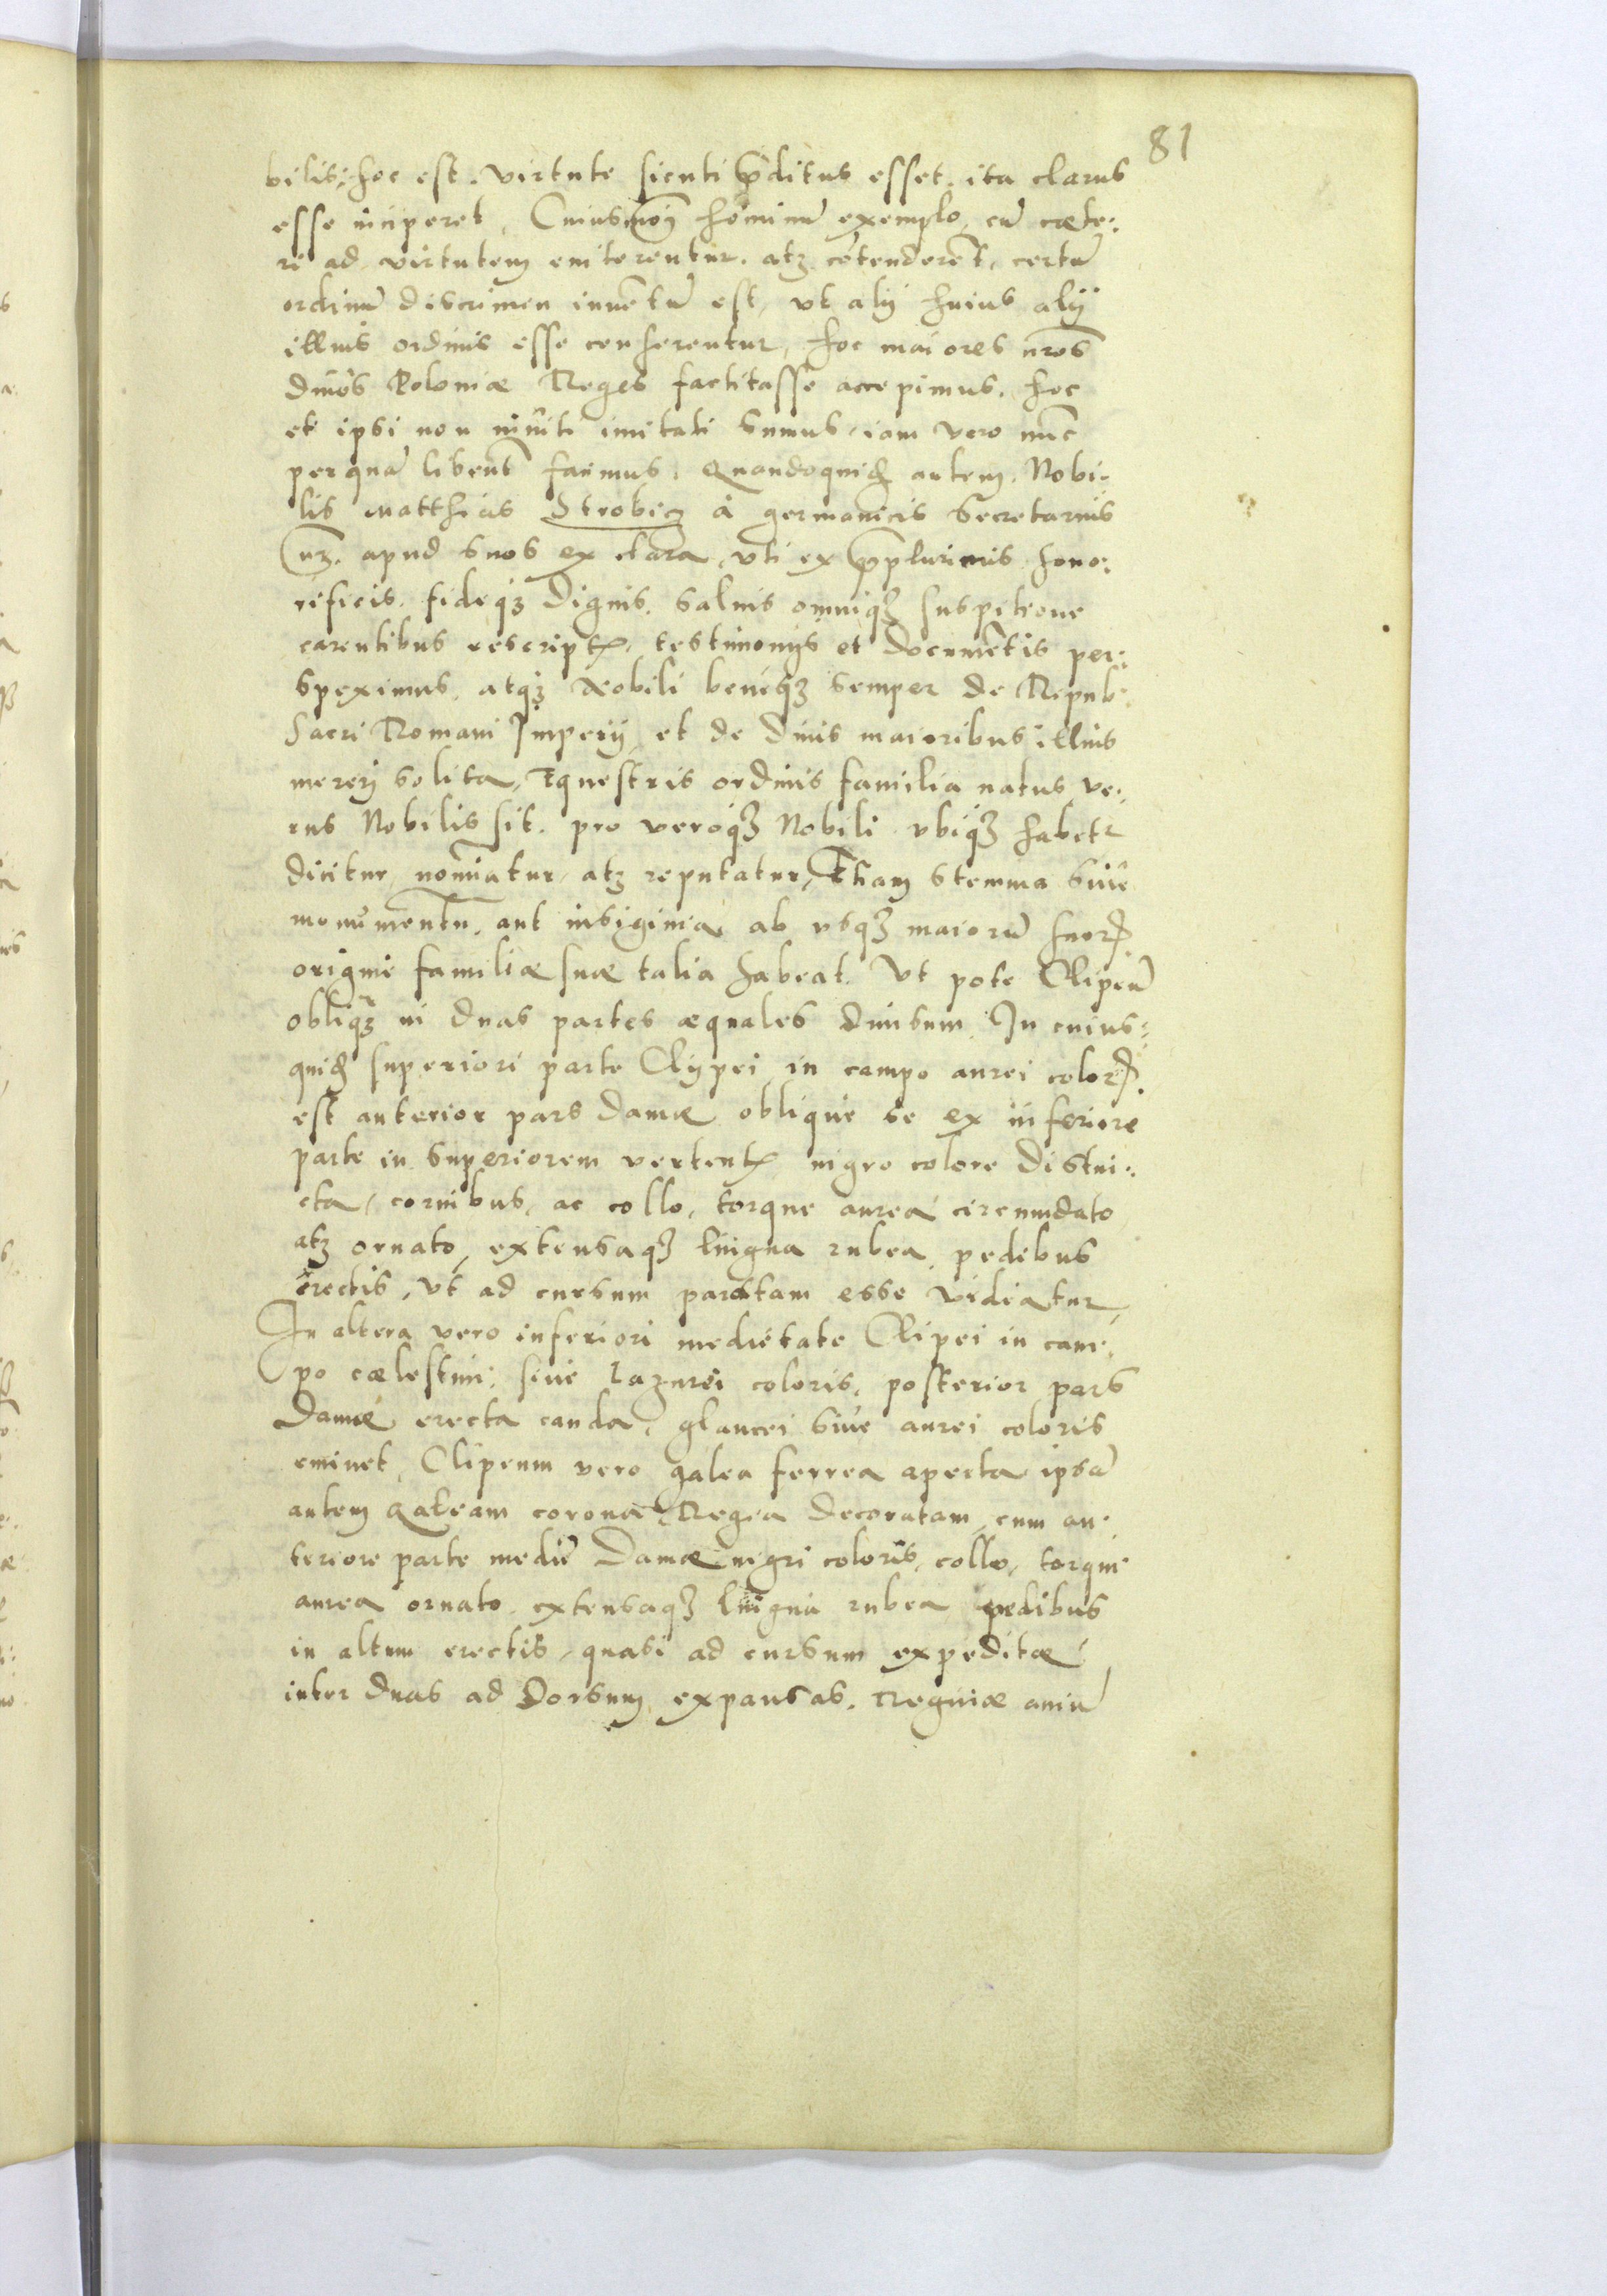 81
bilis: hoc est. virtute sicuti p̃ditus esset. ita clarus
esse inciperet, Cuiusmoĩ hominũ exemplo, cũ cæte:
ri ad virtutem eniterentur. atq; cõtenderẽt, certũ
ordinũ discrimen inuẽtũ est, vt alij huius alij
illius ordinis esse censerentur, hoc maiores nr̃os
diuos Poloniæ Reges factitasse accepimus. hoc
et ipsi non inuiti imitati sumus, iam vero nũc
perquã libent̃ facimus. Quandoquid̃ autem. Nobi-
lis Matthias Strobicz à germanicis Secretarius
nr̃. apud suos ex clara, vti ex p̃plurimis hono:
rificis. fideq; dignis. saluis omniq; suspitione
carentibus rescript, testimonijs et documẽtis per:
speximus. atq; Nobili beneq; semper de Repub:
Sacri Romani Imperij et de diuis maioribus illius
mereri solita, Equestris ordinis familia natus ve:
rus Nobilis sit. pro veroq; Nobili vbiq; habetr
dicitur, nominatur, atq; reputatur, Etiam stemma siue
monumentũ. aut insiginia ab vsq; maiorũ suor
origine familiæ suæ talia habeat. Vt pote Clipeũ
obliq; in duas partes æquales diuisum. In cuius:
quid̃ superiori parte Clypei in campo aurei color
est anterior pars Damæ oblique se ex inferiore
parte in superiorem vertent nigro colore distin:
cta, cornibus, ac collo, torque aurea circumdato
atq; ornato, extensaq; lingua rubea, pedibus
erectis, vt ad cursum paratam esse videatur,
In altera vero inferiori medietate Clipei in cam:
po cælestini, siue Lazurei coloris, posterior pars
Damæ erecta cauda, glaucei siue aurei coloris
eminet, Clipeum vero galea ferrea aperta ipsã
autem Galeam corona Regia decoratam, cum an:
teriore parte mediæ Damæ nigri coloris, collo, torque
aurea ornato. extensaq; lingua rubea pedibus
in altum erectis, quasi ad cursum expeditæ
inter duas ad Dorsum expansas. Reginæ auiũ